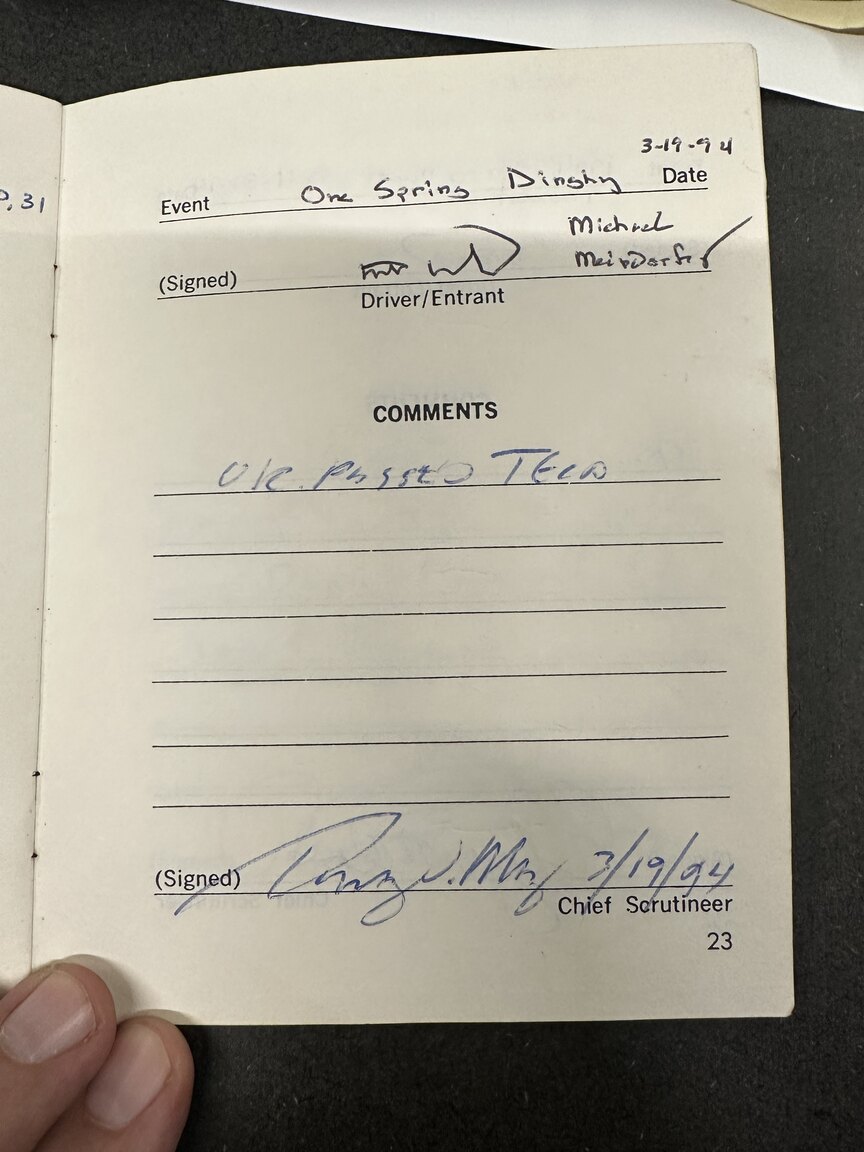 P. 31
3-19-94
Event One Spring Dinghy Date
Michael
(Signed)
Driver/Entrant
COMMENTS
OK PASSED TECH
(Signed) 3/19/94
Chief Scrutineer
23